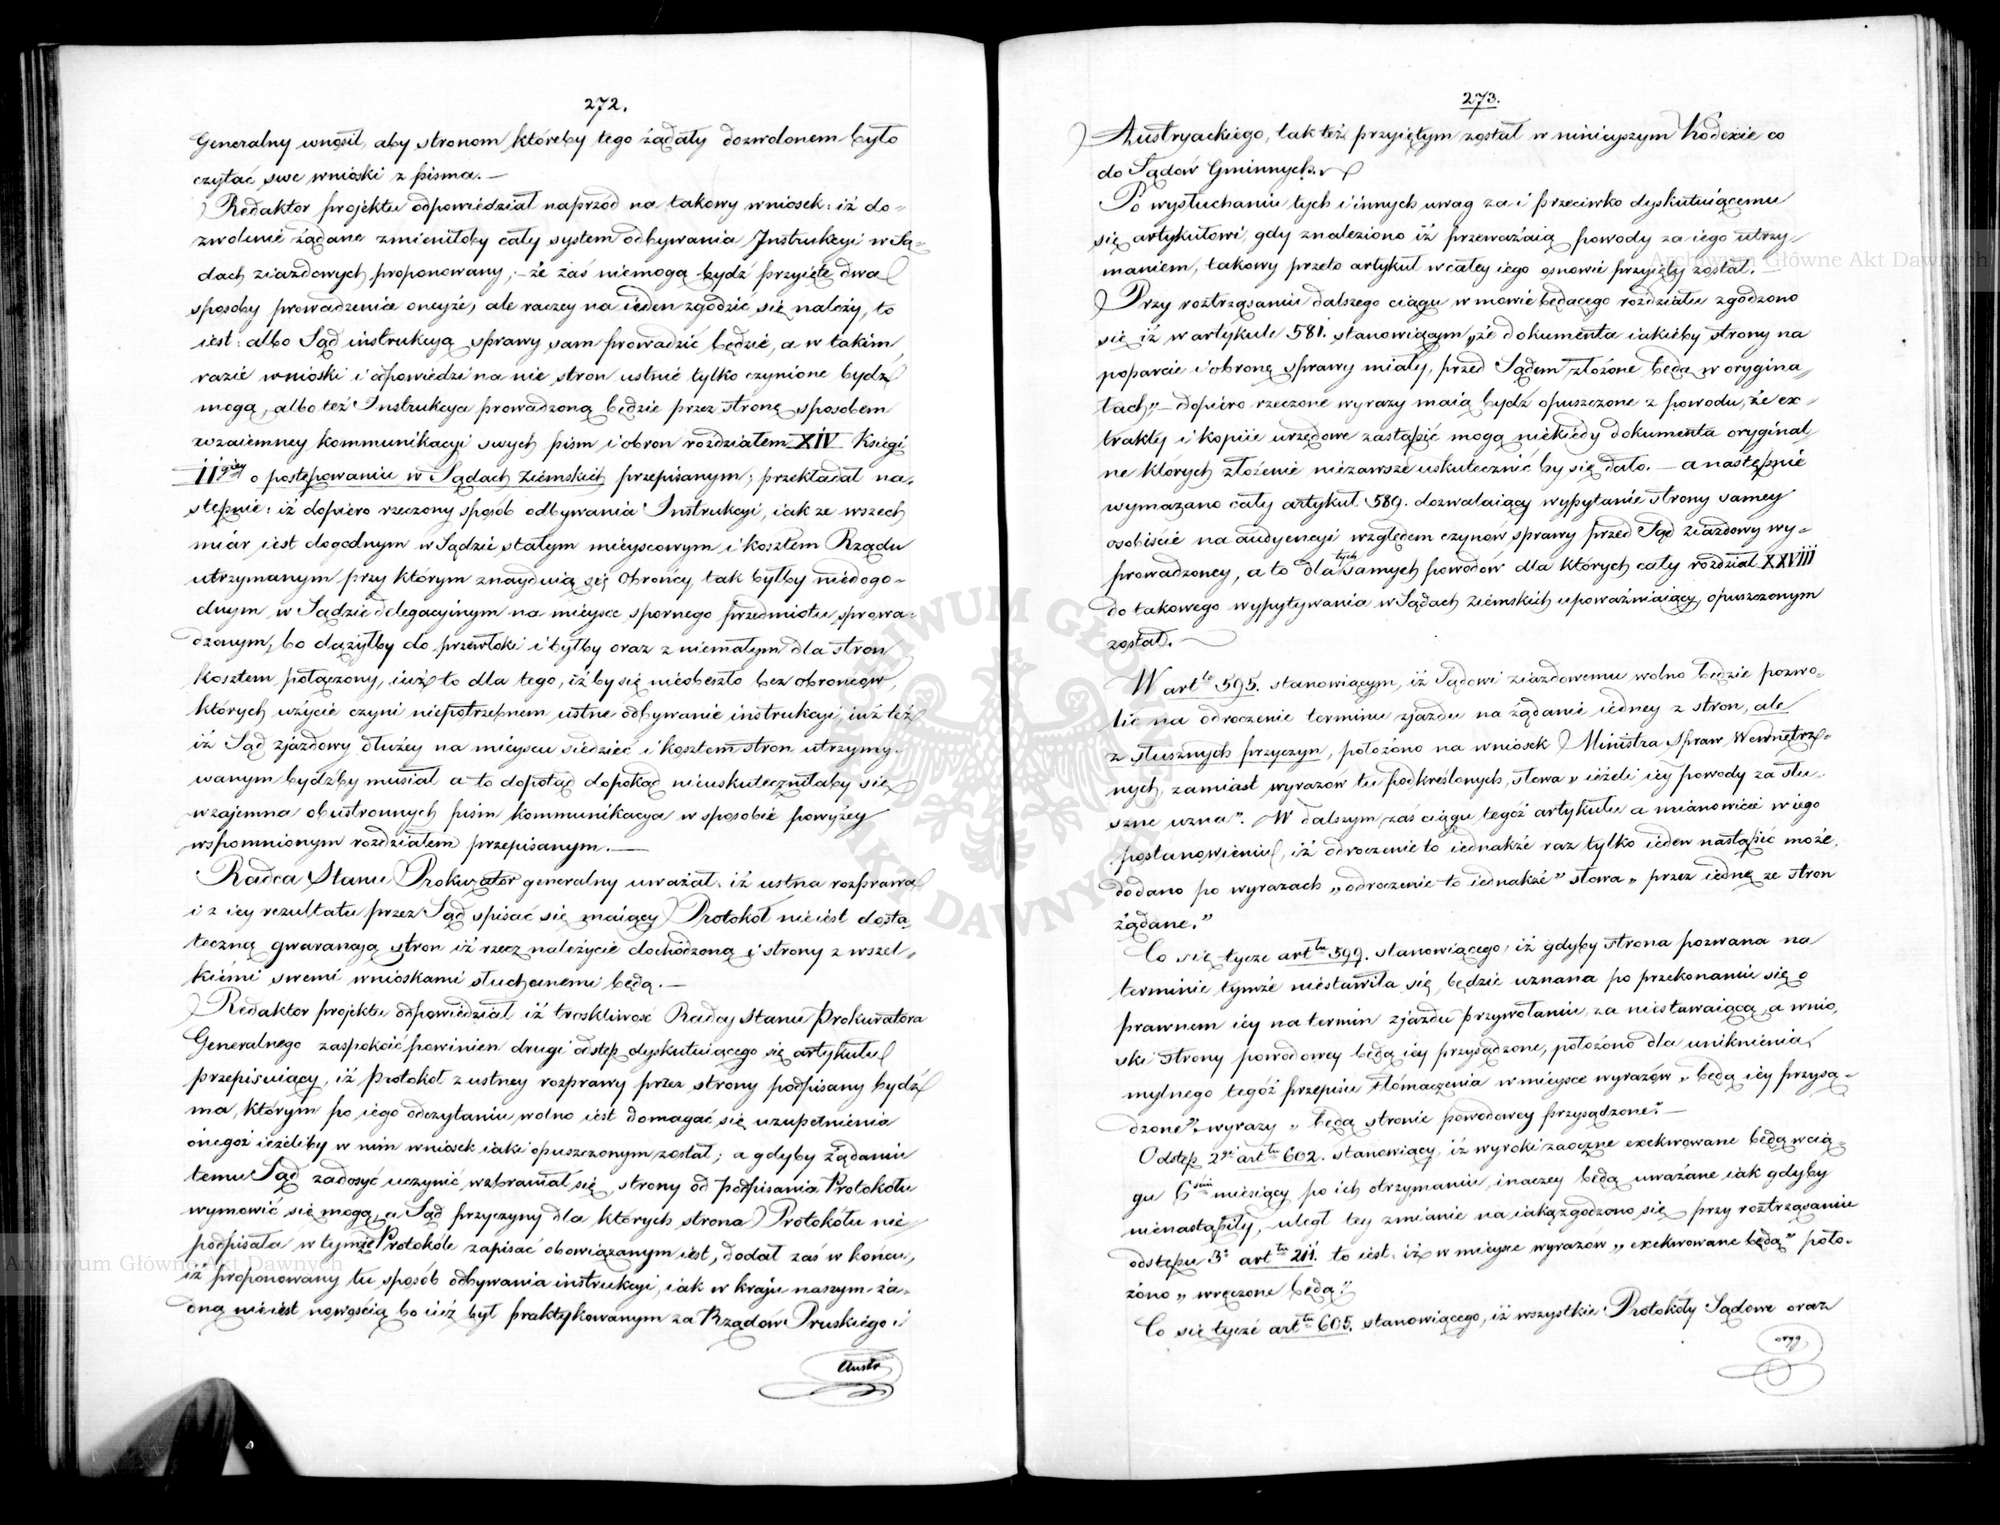 272.
Generalny wnosił, aby stronom któreby tego żądały dozwolonem było
czytać swe wnioski z pisma. —
Redaktor projektu odpowiedział naprzód na takowy wniosek: iż do-
zwolenie żądane zmieniłoby cały system odbywania Instrukcyi w Są-
dach ziazdowych proponowany; — że zaś niemogą bydź przyięte dwa
sposoby prowadzenia oneyże, ale raczey na ieden zgodzić się należy, to
iest: albo Sąd instrukcyą sprawy sam prowadzić będzie, a w takim
razie wnioski i odpowiedzi na nie stron ustnie tylko czynione bydź
mogą, albo też Instrukcya prowadzoną będzie przez stronę sposobem
wzaiemney kommunikacyi swych pism i obron rozdziałem XIV Księgi
IIgiey o postępowaniu w Sądach Ziemskich przepisanym; przekładał na-
stępnie: iż dopiero rzeczony sposób odbywania Instrukcyi, iak ze wszech
miar iest dogodnym w Sądzie stałym mieyscowym i kosztem Rządu
utrzymanym przy którym znayduią się Obrońcy, tak byłby niedogo-
dnym w Sądzie delegacyinym na mieysce spornego przedmiotu sprowa-
dzonym, bo dążyłby do przewłoki i byłby oraz z niemałym dla stron
kosztem połączony, iuż to dla tego, iż by się nieobeszło bez obrońców,
których użycie czyni niepotrzebnem ustne odbywanie instrukcyi, iuż też
iż Sąd zjazdowy dłużey na mieyscu siedzieć i kosztem stron utrzymy-
wanym bydźby musiał a to dopotąd dopokąd nieuskuteczniłaby się
wzajemna obustronnych pism kommunikacya w sposobie powyżey
wspomnionym rozdziałem przepisanym. —
Radca Stanu Prokurator generalny uważał: iż ustna rozprawa
i z iey rezultatu przez Sąd spisać się maiący Protokół nieiest dosta-
teczną gwarancyą stron iż rzecz należycie dochodzoną i strony z wszel-
kiémi swemi wnioskami słuchanemi będą. —
Redaktor projektu odpowiedział iż troskliwość Radcy Stanu Prokuratora
Generalnego zaspokoić powinien drugi odstęp dyskutuiącego się artykułu
przepisuiący, iż Protokół z ustney rozprawy przez strony podpisany bydź
ma, którym po iego odczytaniu wolno iest domagać się uzupełnienia
onegoż ieżeliby w nim wniosek iaki opuszczonym został; a gdyby żądaniu
temu Sąd zadosyć uczynić wzbraniał się, strony od podpisania Protokółu
wymówić się mogą, a Sąd przyczyny dla których strona Protokółu nie
podpisała w tymże Protokóle zapisać obowiązanym iest, dodał zaś w końcu,
iż proponowany tu sposób odbywania instrukcyi, iak w kraju naszym ża-
dną nieiest nowością bo iéż był praktykowanym za Rządów Pruskiégo i
Austr
273.
Austryackiego, tak też przyiętym został w niniejszym Kodexie co
do Sądów Gminnych.
Po wysłuchaniu tych i innych uwag za i przeciwko dyskutuiącemu
się artykułowi, gdy znaleziono iż przeważaią powody za iego utrzy-
maniem, takowy przeto artykuł w całey iego osnowie przyięty został. —
Przy roztrząsaniu dalszego ciągu w mowie będącego rozdziału zgodzono
się iż w artykule 581. stanowiącym „że dokumenta iakieby strony na
poparcie i obronę sprawy miały, przed Sądem złożone będą w orygina-
łach” — dopiéro rzeczone wyrazy maią bydź opuszczone z powodu, że ex-
trakty i kopiie urzędowe zastąpić mogą niekiedy dokumenta oryginal-
ne których złożenie niezawsze uskutecznić by się dało. — a następnie
wymazano cały artykuł 589. dozwalaiący wypytanie strony samey
osobiście na audyencyi względem czynów sprawy przed Sąd ziazdowy wy-
prowadzoney, a to dla tych samych powodów dla których cały rozdział XXVIII
do takowego wypytywania w Sądach Ziemskich upoważniaiący opuszczonym
został. —
W artle 595. stanowiącym, iż Sądowi ziazdowemu wolno będzie pozwo-
lić na odroczenie terminu zjazdu na żądanie iedney z stron, ale
z słusznych przyczyn, położono na wniosek Ministra Spraw Wewnętrz-
nych, zamiast wyrazów tu podkreślonych, słowa „ieżeli iey powody za słu-
szne uzna”. W dalszym zaś ciągu tegoż artykułu a mianowicie w iego
postanowieniu, iż odroczenie to iednakże raz tylko ieden nastąpić może,
dodano po wyrazach „odroczenie to iednakże” słowa „przez iednę ze stron
żądane.”
Co się tycze arttu 599. stanowiącego, iż gdyby strona pozwana na
terminie tymże niestawiła się, będzie uznana po przekonaniu się o
prawnem iey na termin zjazdu przywołaniu, za niestawaiącą, a wnio-
ski strony powodowey będą iey przysądzone, położono dla uniknienia
mylnego tegoż przepisu tłómaczenia w mieysce wyrazów „będą iey przysą-
dzone” wyrazy „będą stronie powodowey przysądzone.” —
Odstęp 2gi arttu 602. stanowiący iż wyroki zaoczne exekwowane będą w cią-
gu 6ciu miesięcy po ich otrzymaniu, inaczey będą uważane iak gdyby
nienastąpiły, uległ tey zmianie na iaką zgodzono się przy roztrząsaniu
odstępu 3o arttu 211. to iest: iż w mieysce wyrazów „exekwowane będą” poło-
żono „wręczone będą.”
Co się tycze arttu 605. stanowiącego, iż wszystkie Protokóły Sądowe oraz
oryg
Archiwum Główne Akt Dawnych
Archiwum Główne Akt Dawnych
ARCHIWUM GŁÓWNE AKT DAWNYCH